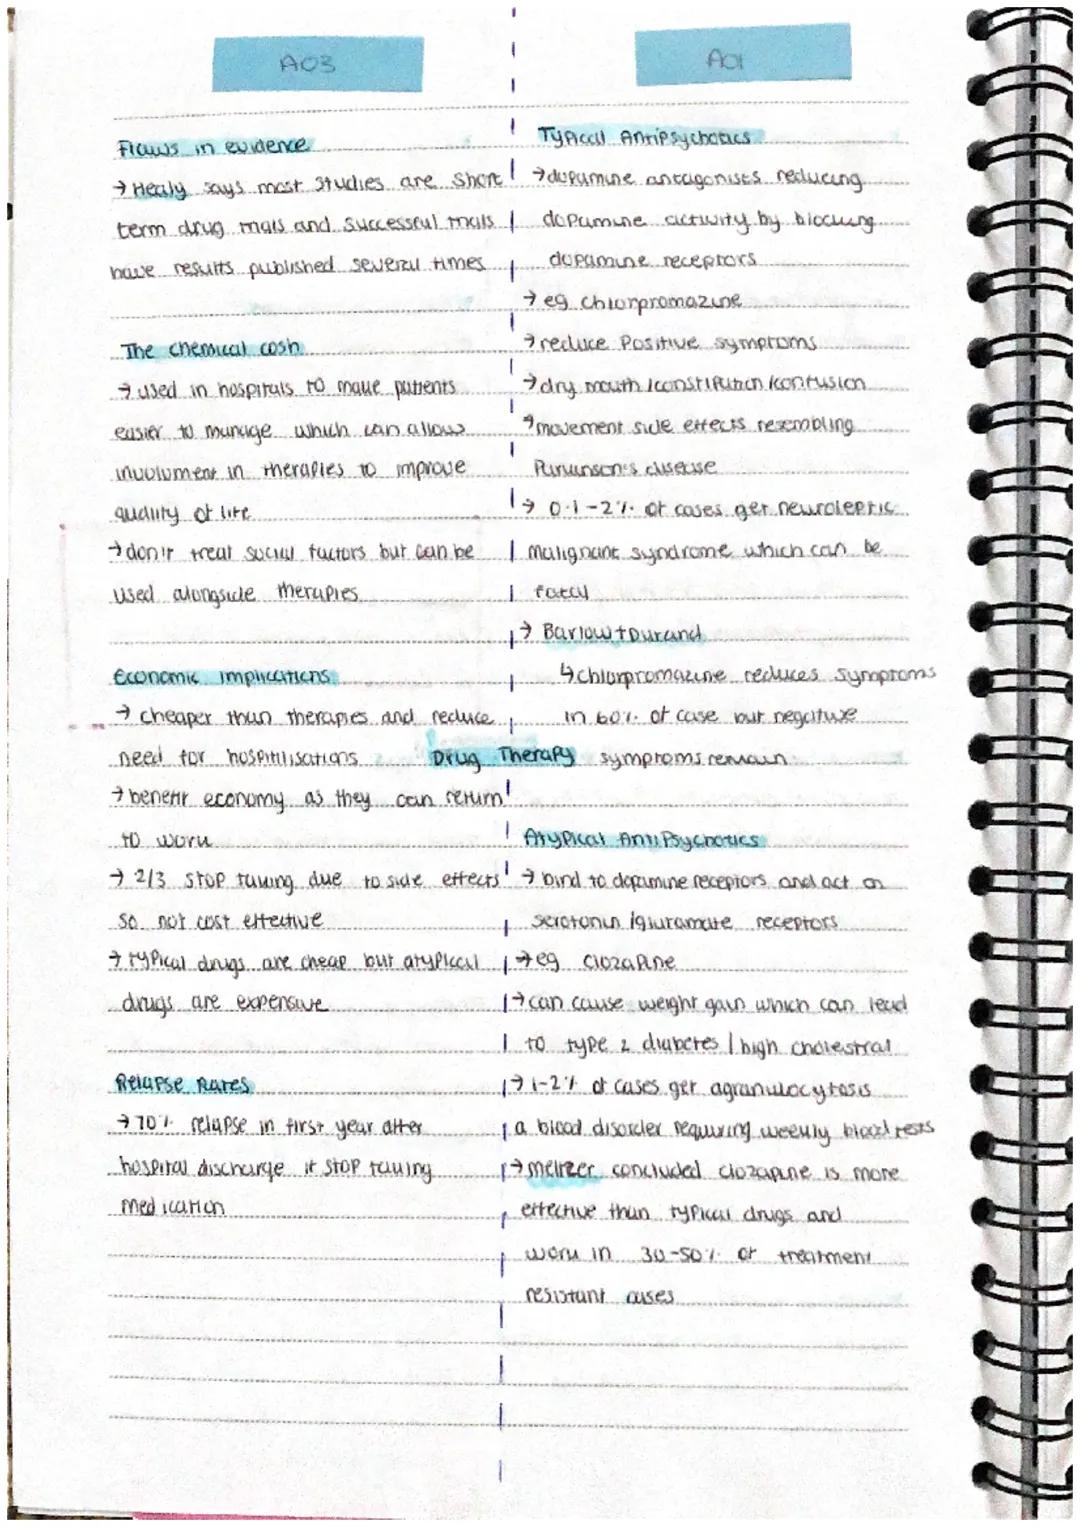 AO3
Flaws in evidence
→ Healy says most studies are short
term drug trials and successful trials
have results published several times
The chemical cosh
→ used in hospitals to make patients
easier to manage which can allows
involvment in therapies to improve
quality of life
→ don't treat social factors but can be
used alongside therapies
Economic implications
→ cheaper than therapies and reduce
need for hospitilisations
→ benefit economy as they can return
to work
→ 2/3 stop taking due to side effects
so not cost effective
→ typical drugs are cheap but atypical
drugs are expensive
Relapse Rates
→ 70% relapse in first year after
hospital discharge if stop taking
medication
Drug Therapy
AO1
Typical Antipsychotics
→ dopamine antagonists reducing
dopamine activity by blocking
dopamine receptors
→ eg chlorpromazine
→ reduce Positive symptoms
→ dry mouth / constipation / confusion
→ movement side effects resembling
Parkinson's disease
→ 0.1-2% of cases get neuroleptic
malignant syndrome which can be
fatal
→ Barlow + Durand
↳ chlorpromazine reduces symptoms
in 60% of case but negative
symptoms remain
Atypical AntiPsychotics
→ bind to dopamine receptors and act on
serotonin / glutamate receptors
→ eg clozapine
→ can cause weight gain which can lead
to type 2 diabetes / high cholestral
→ 1-2% of cases get agranulocytosis
a blood disorder requiring weekly blood tests
→ meltzer concluded clozapine is more
effective than typical drugs and
work in 30-50% of treatment
resistant cases